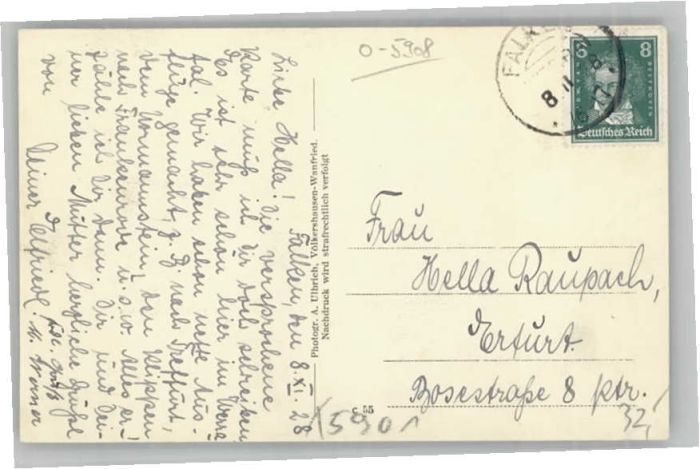 Falken, den 8.XI. 28
Liebe Hella! Die versprochene
Karte muß ich dir doch schreiben
Es ist sehr schön hier im Werra
tal. Wir haben schon nette Aus-
flüge gemacht, z. B. nach Treffurt,
dem Normannstein, den Klippen,
nach Frankenroda u.s.w. Alles er-
zähle ich dir dann. Dir und Dei-
ner lieben Mutter herzliche Grüße
von Deiner Elfriede.
Photogr. A. Uhrich, Völkershausen-Wanfried.
Nachdruck wird strafrechtlich verfolgt
O-5908
FALKEN
8 11
8 8
BEETHOVEN
Deutsches Reich
Frau
Hella Raupach,
Erfurt.
Bosestraße 8 ptr.
c 55
5901
32,